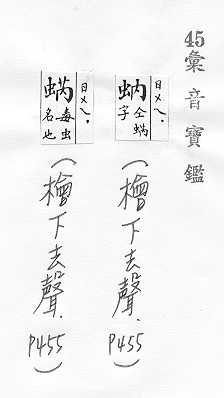 45彙音寶鑑
ㄖㄨㄟ.
蚋 仝蜹
字
(檜下去聲.P455)
ㄖㄨㄟ.
蜹 毒虫
名也
(檜下去聲.P455)